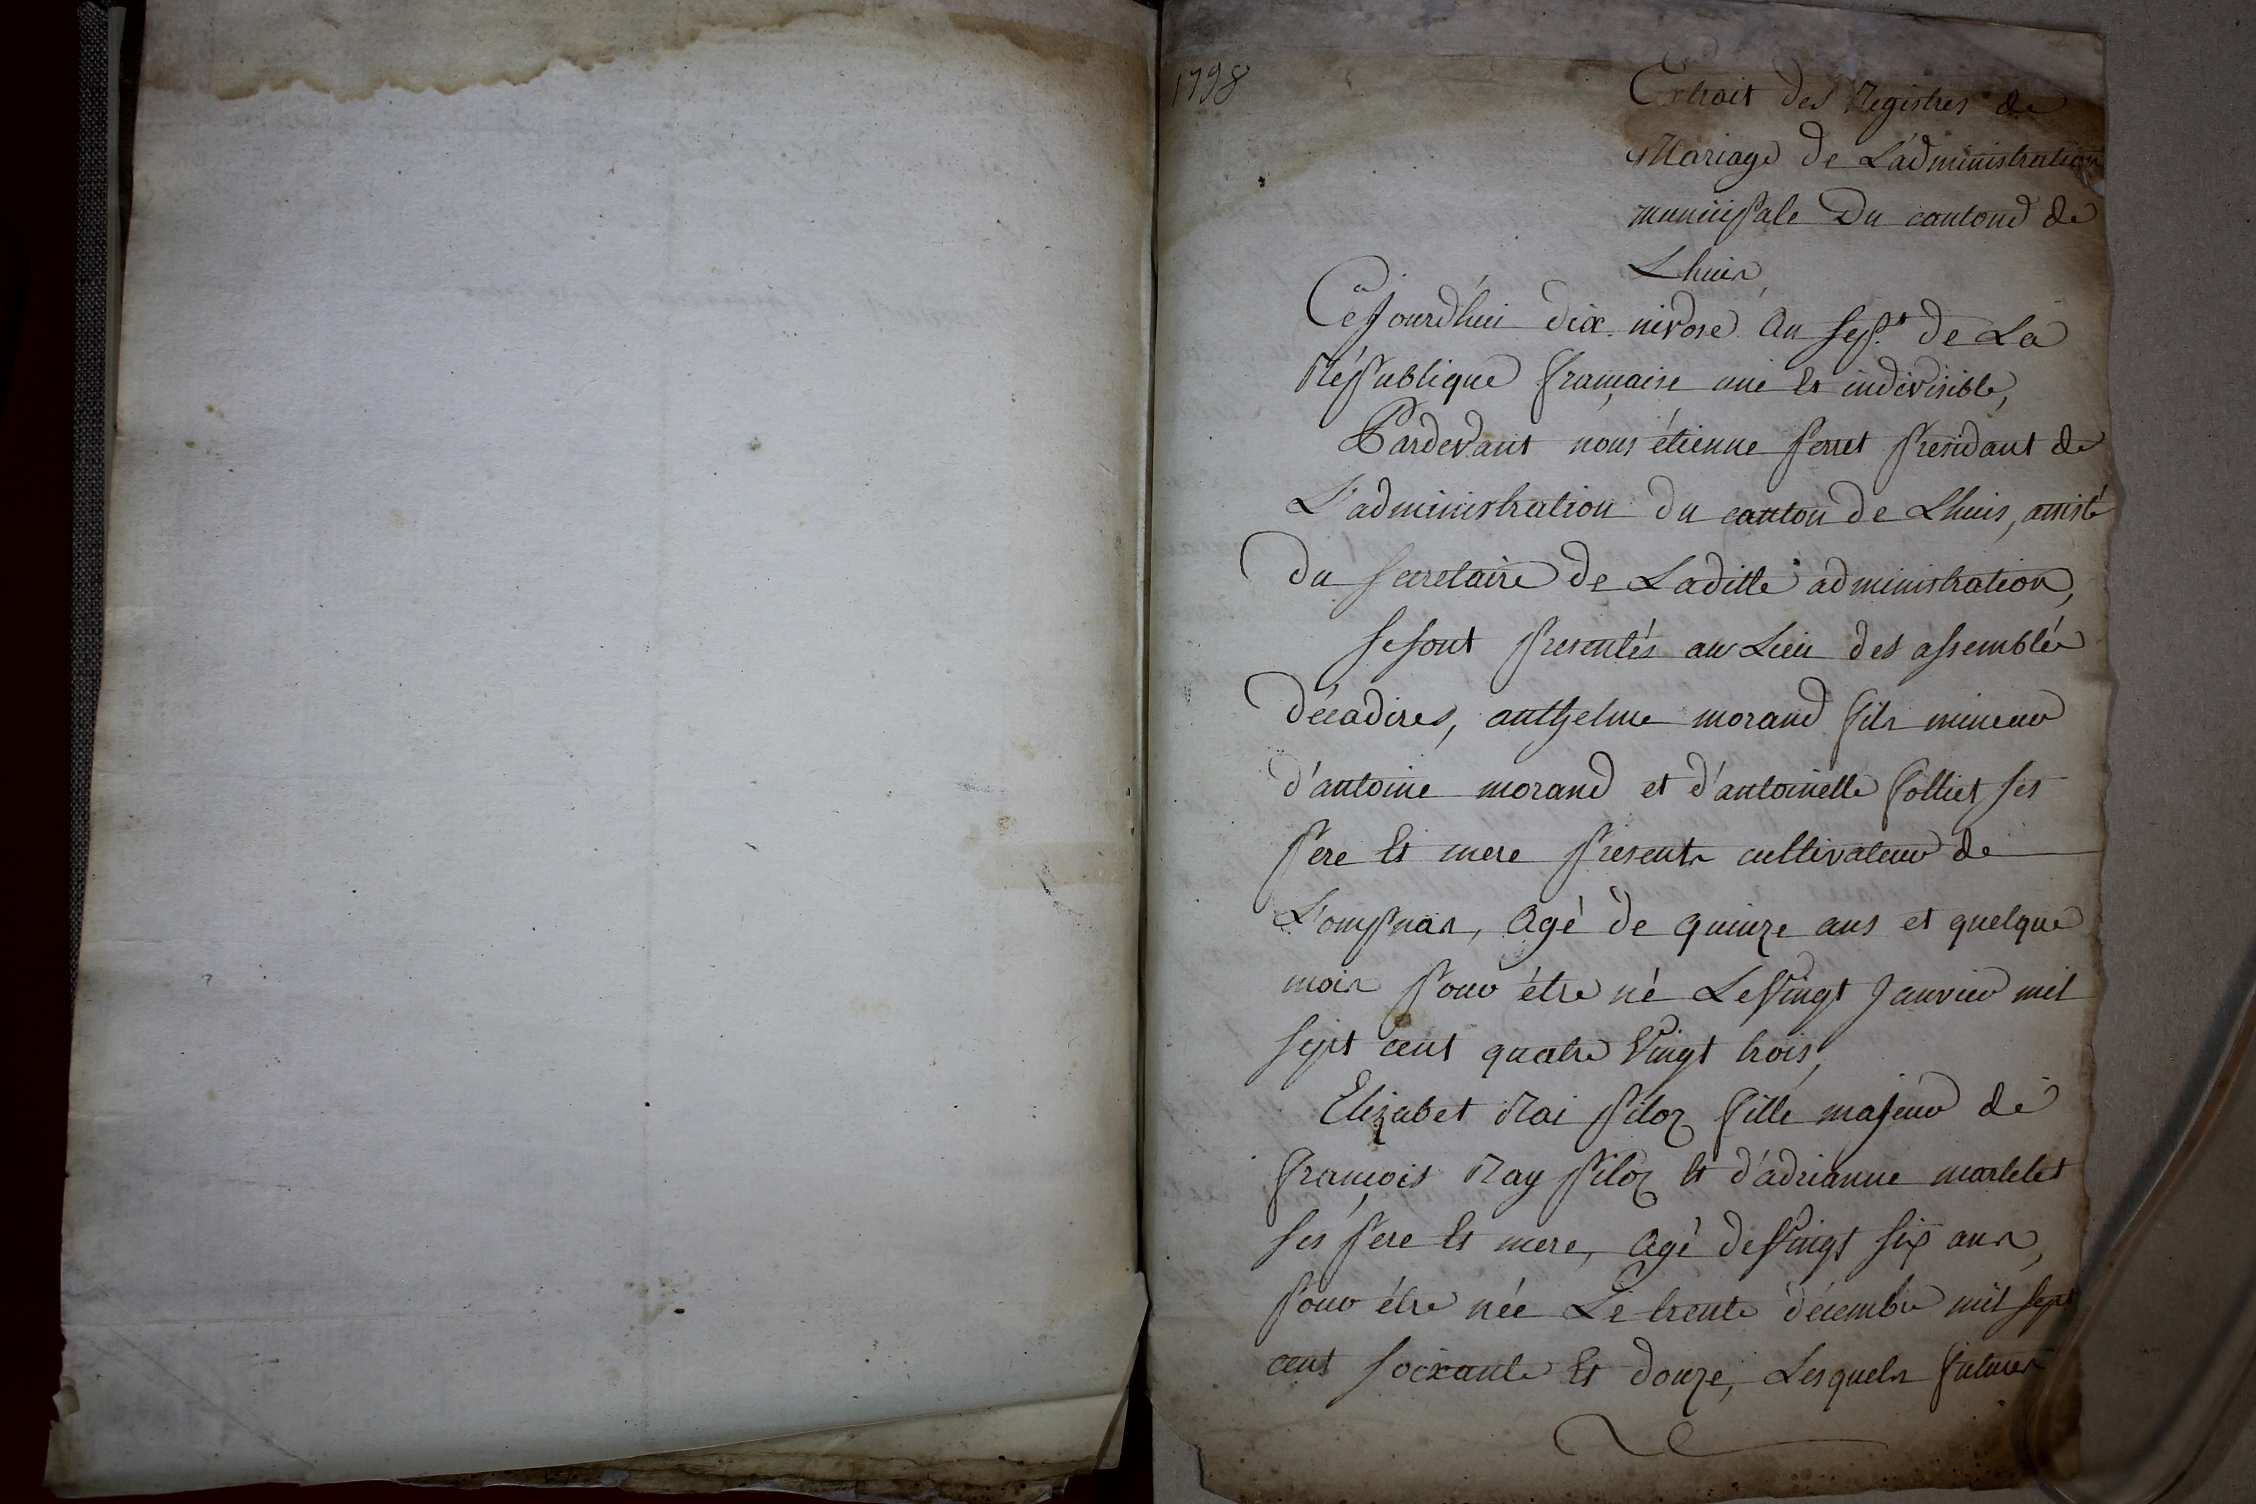 1798
Extrait des Registres de
Mariage de L'administration
municipale Du cantond de
Lhuis,
Cejourd'hui dix nivose an sept de La
République française une et indivisible,
Pardevant nous étienne perret présidant de
L'administration du canton de Lhuis, assisté
du secretaire de Laditte administration,
se sont presentés au Lieu des assemblée
décadires, anthelme morand fils mineur
d'antoine morand et d'antoinette folliet ses
pere et mere presents cultivateur de
Lompnas, agé de quinze ans et quelque
mois pour être né Le vingt Janvier mil
sept cent quatre vingt trois,
Elizabet Rai piloz fille majeur de
françois Ray piloz et d'adrianne martelet
ses pere et mere, agé de vingt six ans,
pour être née Le trente décembre mil sept
cent soixante et douze, Lesquels futures